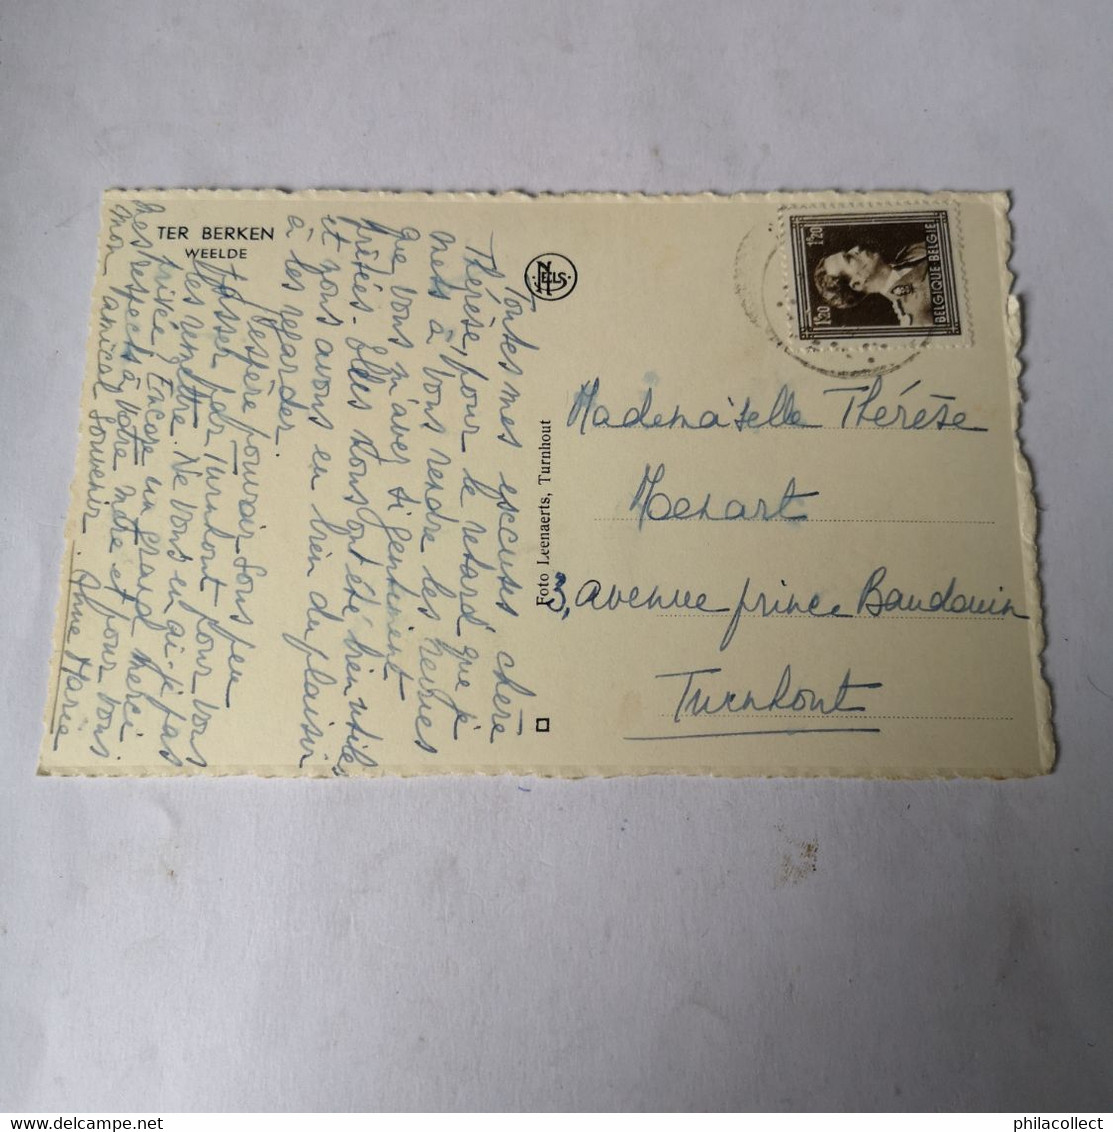 TER BERKEN
WEELDE
Toutes mes excuses chère
Thérèse, pour le retard que je
mets à vous rendre les
que vous m'avez si gentiment
prêtés. Elles nous ont été bien utiles
et nous avons eu bien du plaisir
à les regarder.
J'espère pouvoir sous peu
passer par Turnhout pour vous
les remettre. Ne vous en ai-je pas
privée. Encore un grand merci
Mes respects à votre mère et pour vous
mon amical souvenir. Anne Marie
NELS
Foto Leenaerts, Turnhout
1F20
1F20
BELGIQUE-BELGIE
Mademoiselle Thérèse
3, avenue prince Baudouin
Turnhout
philacollect